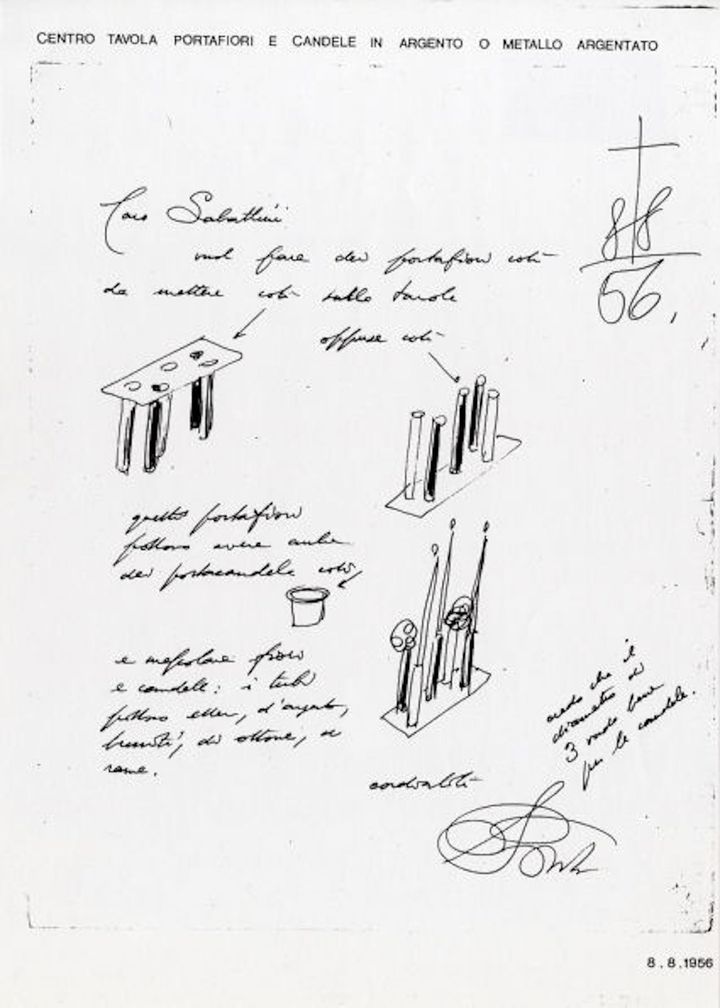 CENTRO TAVOLA PORTAFIORI E CANDELE IN ARGENTO O METALLO ARGENTATO
8 8
56,
Caro Sabattini
vuol fare dei portafiori così
da mettere così sulla tavola
oppure così
questi portafiori
possono avere anche
dei portacandele così
e mescolare fiori
e candele: i tubi
possono essere, d'argento,
bruniti, di ottone, di
rame.
credo che il
diametro di
3 vada bene
per le candele.
cordialità
Ponti
8.8.1956